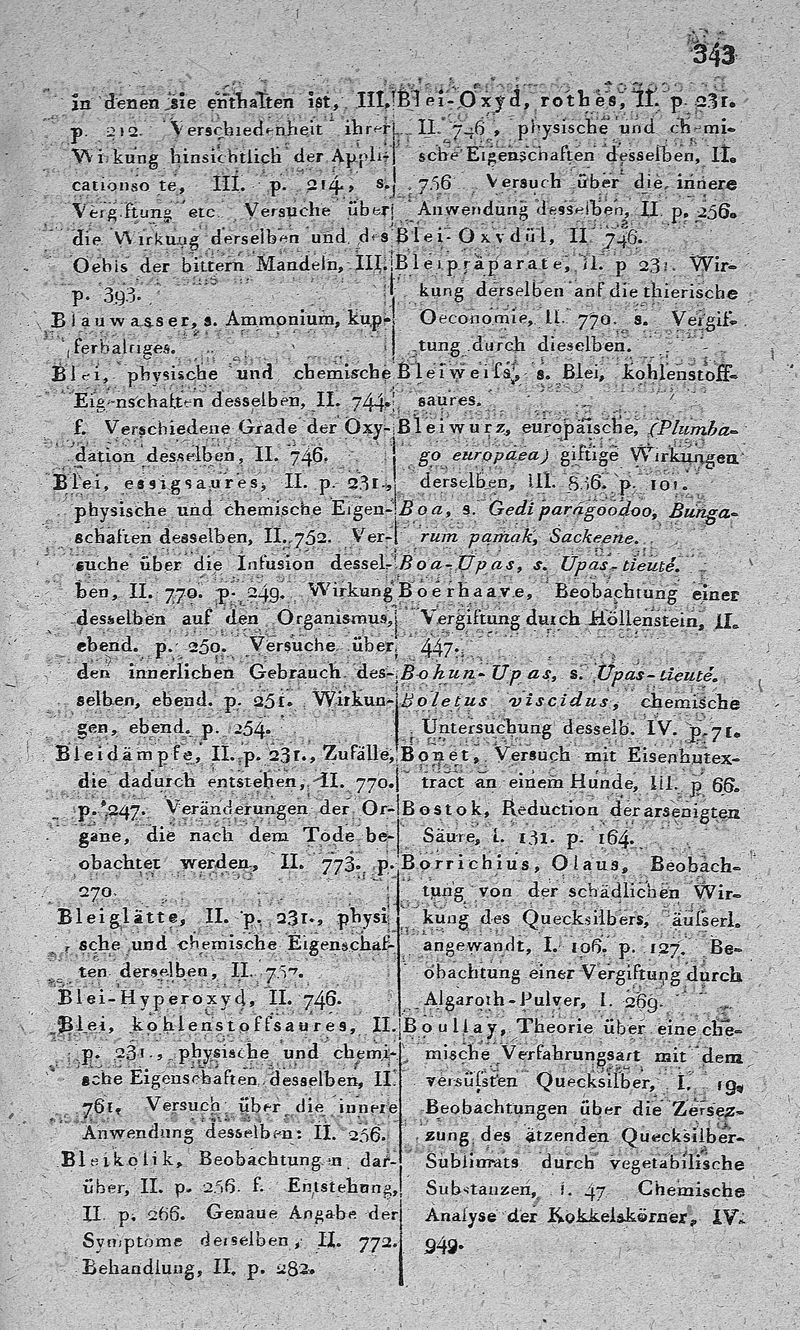 343
in denen sie enthalten ist, III.
p. 212. Verschiedenheit ihrer
Wirkung hinsichtlich der Appli-
cationsorte, III. p. 214., s.
Vergiftung etc. Versuche über
die Wirkung derselben und des
Oehls der bittern Mandeln, III.
p. 393.
Blauwasser, s. Ammonium, kup-
ferhaltiges.
Blei, physische und chemische
Eigenschaften desselben, II. 744.
f. Verschiedene Grade der Oxy-
dation desselben, II. 746.
Blei, essigsaures, II. p. 231.,
physische und chemische Eigen-
schaften desselben, II. 752. Ver-
suche über die Infusion dessel-
ben, II. 770. p. 249. Wirkung
desselben auf den Organismus,
ebend. p. 250. Versuche über
den innerlichen Gebrauch des-
selben, ebend. p. 251. Wirkun-
gen, ebend. p. 254.
Bleidämpfe, II. p. 231., Zufälle,
die dadurch entstehen, II. 770.
p. 247. Veränderungen der Or-
gane, die nach dem Tode be-
obachtet werden, II. 773. p.
270.
Bleiglätte, II. p. 231., physi
sche und chemische Eigenschaf-
ten derselben, II. 757.
Blei-Hyperoxyd, II. 746.
Blei, kohlenstoffsaures, II.
p. 231., physische und chemi-
sche Eigenschaften desselben, II.
761. Versuch über die innere
Anwendung desselben: II. 256.
Bleikolik, Beobachtungen dar-
über, II. p. 256. f. Entstehung,
II. p. 266. Genaue Angabe der
Symptome derselben, II. 772.
Behandlung, II. p. 282.
Blei-Oxyd, rothes, II. p. 231.
II. 746, physische und chemi-
sche Eigenschaften desselben, II.
756 Versuch über die innere
Anwendung desselben, II p. 256.
Blei-Oxydül, II 746.
Bleipräparate, II. p 231. Wir-
kung derselben auf die thierische
Oeconomie, II. 770. s. Vergif-
tung durch dieselben.
Bleiweiſs, s. Blei, kohlenstoff-
saures.
Bleiwurz, europäische, (Plumba-
go europaea) giftige Wirkungen
derselben, III. 836. p. 101.
Boa, s. Gedi paragoodoo, Bunga-
rum pamak, Sackeene.
Boa-Upas, s. Upas-tieuté.
Boerhaave, Beobachtung einer
Vergiftung durch Höllenstein, II.
447.
Bohun-Upas, s. Upas-tieuté.
Boletus viscidus, chemische
Untersuchung desselb. IV. p. 71.
Bonet, Versuch mit Eisenhutex-
tract an einem Hunde, III. p 66.
Bostok, Reduction der arsenigten
Säure, I. 131. p. 164.
Borrichius, Olaus, Beobach-
tung von der schädlichen Wir-
kung des Quecksilbers, äuſserl.
angewandt, I. 106. p. 127. Be-
obachtung einer Vergiftung durch
Algaroth-Pulver, I. 269.
Boullay, Theorie über eine che-
mische Verfahrungsart mit dem
versüſsten Quecksilber, I. 19,
Beobachtungen über die Zersez-
zung des ätzenden Quecksilber-
Sublimats durch vegetabilische
Substanzen, I. 47 Chemische
Analyse der Kokkelskörner, IV.
949.